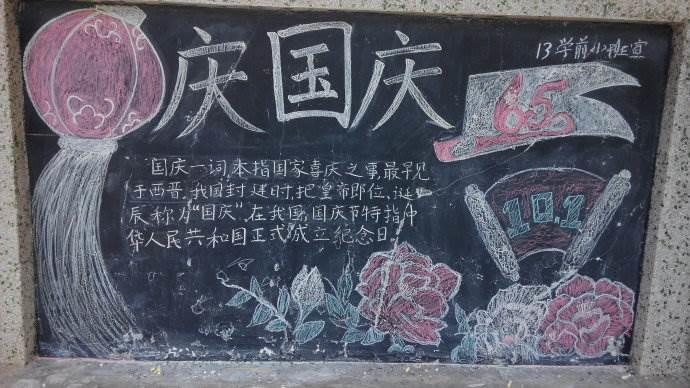 庆国庆
13学前小班宣
65
国庆一词,本指国家喜庆之事,最早见
于西晋,我国封建时,把皇帝即位、诞
辰称为“国庆”,在我国,国庆节特指中
华人民共和国正式成立纪念日。
10.1